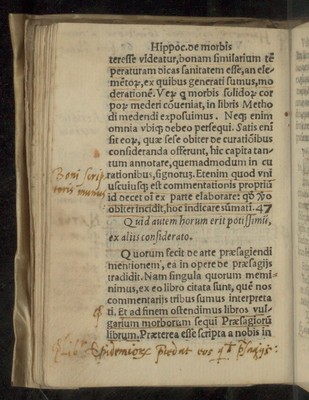 Hippoc. de morbis
teresse videatur, bonam similarium tē
peraturam dicas sanitatem esse, an ele-
mētoꝝ, ex quibus generati sumus, mo
derationē. Veꝝ ꝙ morbis solidoꝝ cor
poꝝ mederi cōueniat, in libris Metho
di medendi exposuimus. Neqꝫ enim
omnia vbiqꝫ debeo persequi. Satis enī
sit eoꝝ, quæ sese obiter de curatiōibus
consideranda offerunt, hic capita tan-
tum annotare, quemadmodum in cu
rationibus, signorūꝫ. Etenim quod vni
uscuiusqꝫ est commentationis propriū
id decet oī ex parte elaborare: qđ
obiter incidit, hoc indicare sūmati. 47
Quid autem horum erit potissimū,
ex aliis considerato.
Quorum fecit de arte præsagiendi
mentionem, ea in opere de præsagijs
tradidit. Nam singula quorum memi-
nimus, ex eo libro citata sunt, quē nos
commentarijs tribus sumus interpreta
ti. Et ad finem ostendimus libros vul-
garium morborum sequi Præsagiorū
librum. Præterea esse scripta a nobis in
Boni scrip
toris munus